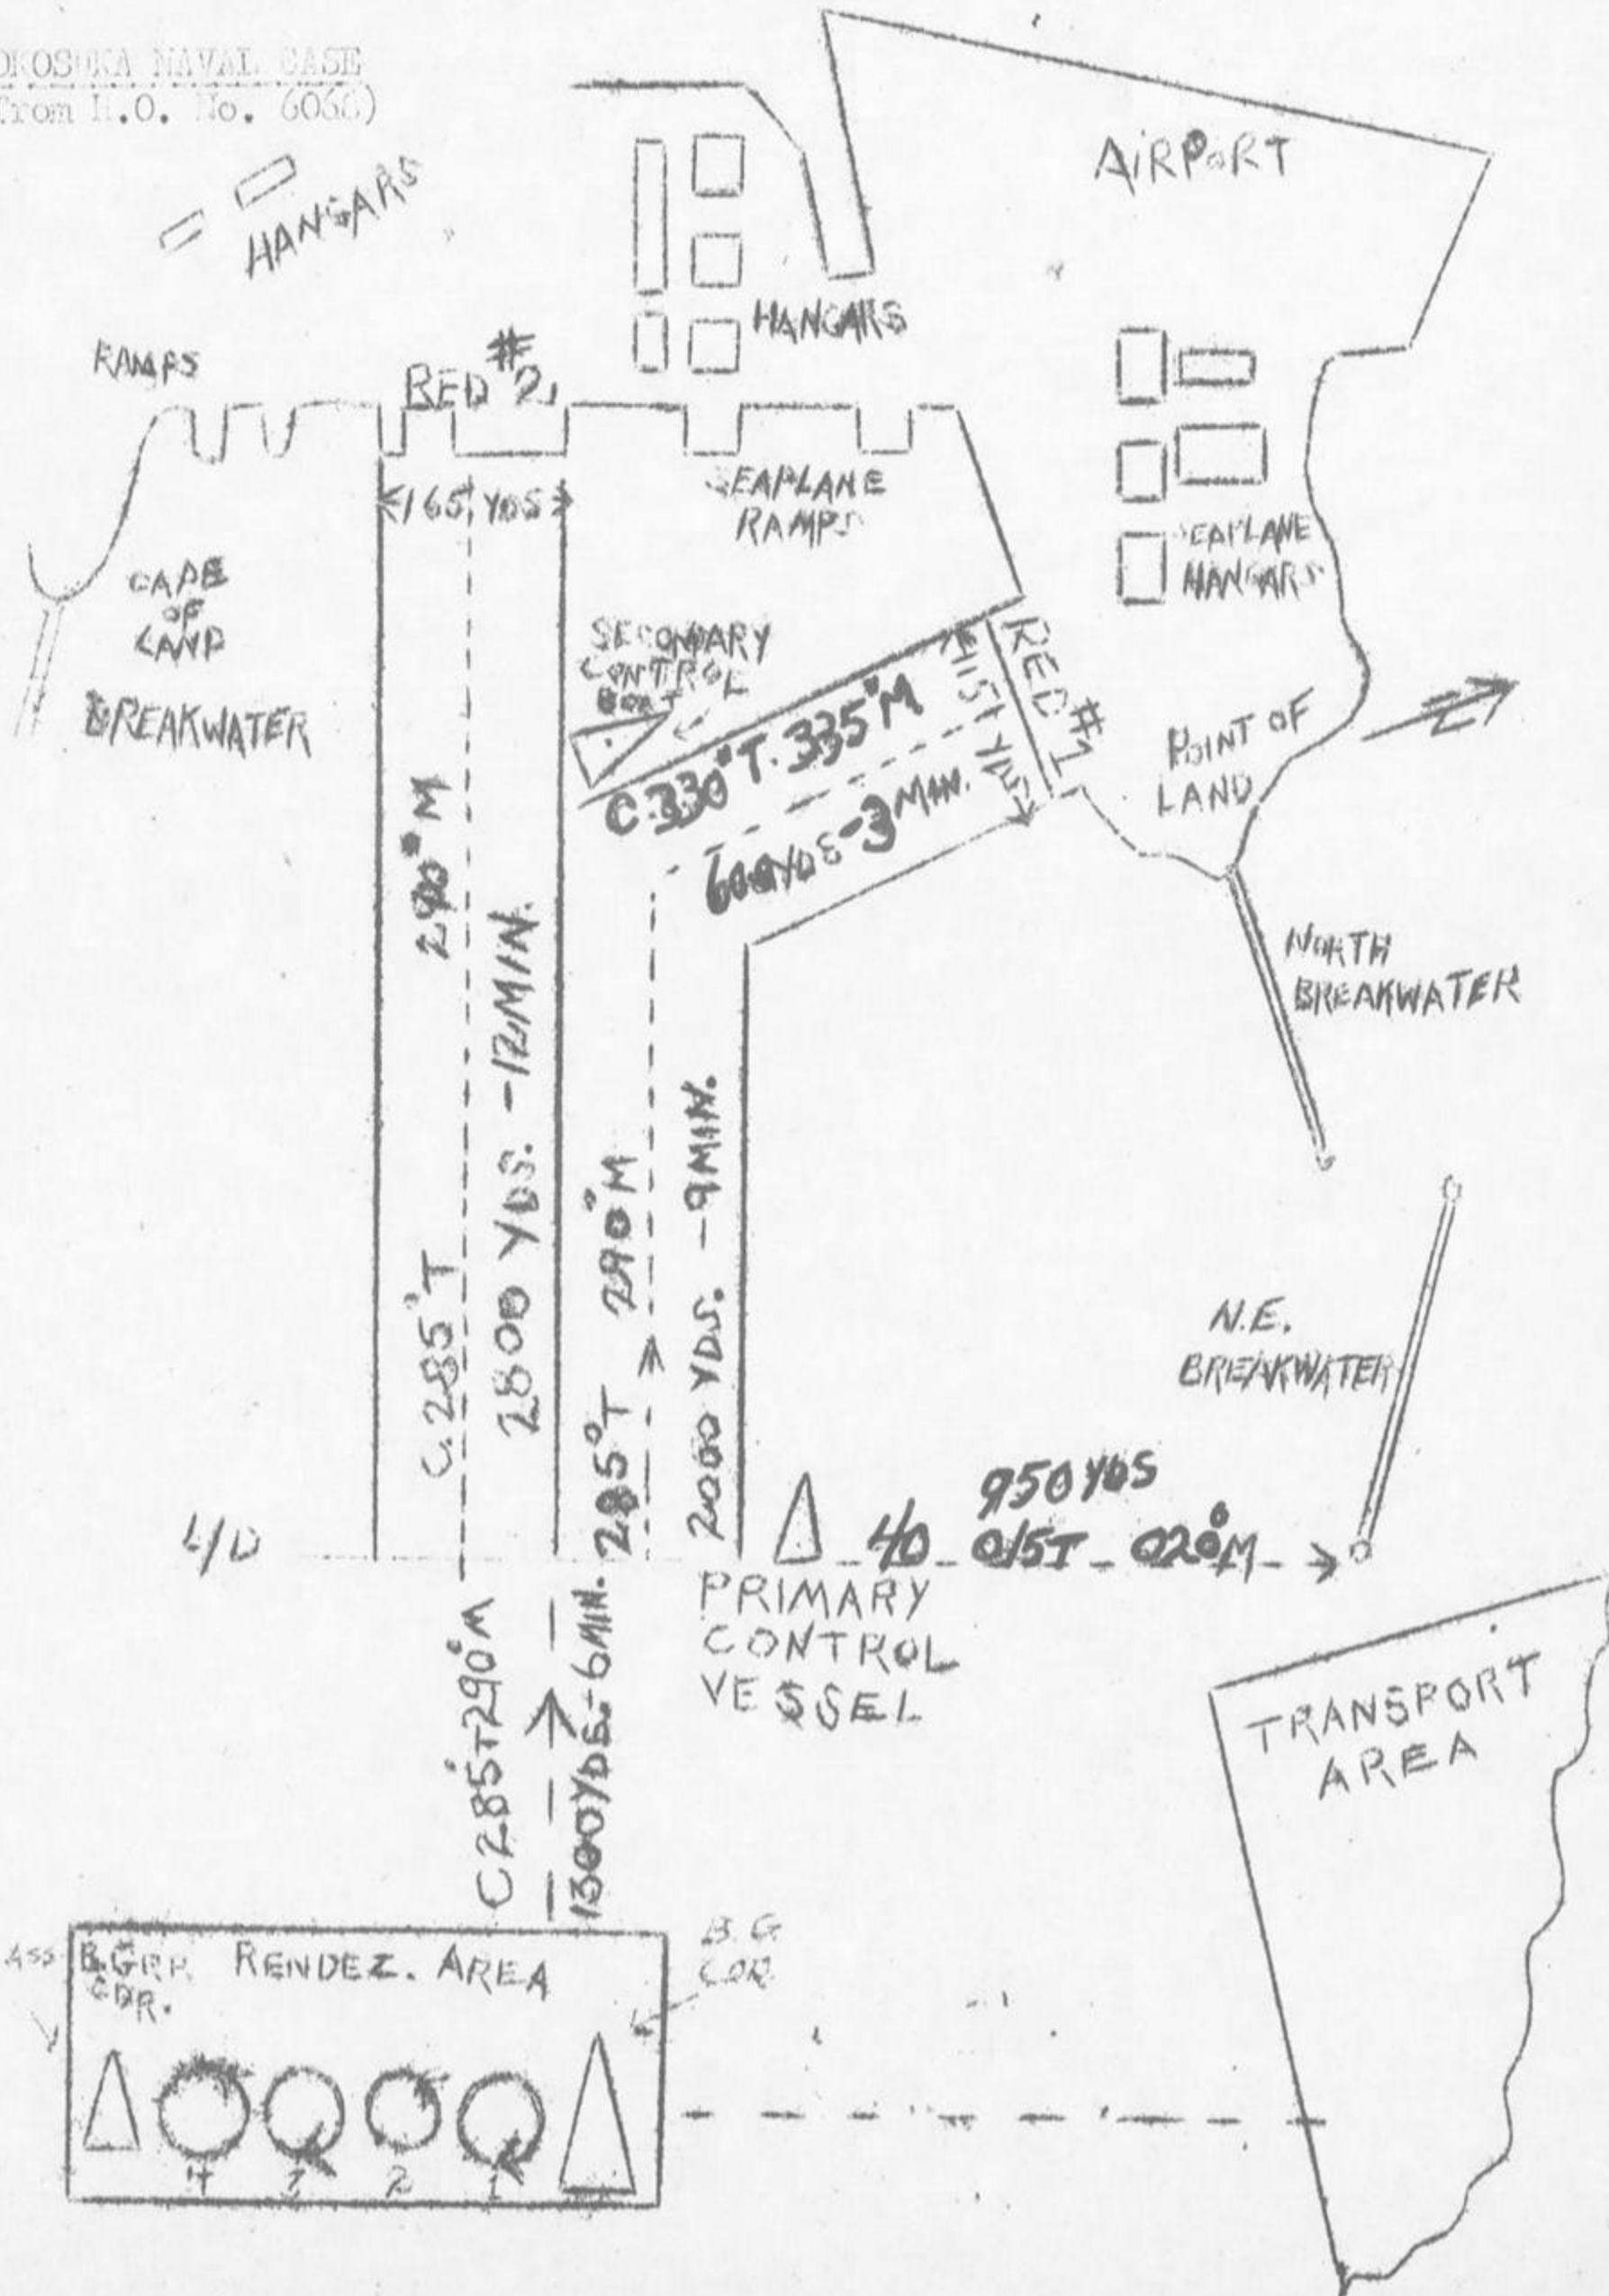 OKOSUKA NAVAL BASE
from H.O. No. 6066)
AIRPORT
HANGARS
HANGARS
RAMPS
RED #2
165 YDS
SEAPLANE
RAMPS
SEAPLANE
HANGARS
CAPE
OF
LAND
BREAKWATER
SECONDARY
CONTROL
BOAT
C.330°T. 335°M
600 YDS - 3 MIN.
YDS
RED #1
POINT OF
LAND
NORTH
BREAKWATER
C. 285°T 290°M
2800 YDS. - 12 MIN.
285°T 290°M
2000 YDS. - 9 MIN.
N.E.
BREAKWATER
L/D
950 YDS
015T 020°M
PRIMARY
CONTROL
VESSEL
C 285°T 290°M
1300 YDS. - 6 MIN.
TRANSPORT
AREA
ASS B.GRP.
CDR.
RENDEZ. AREA
B.G
CDR.
4 3 2 1